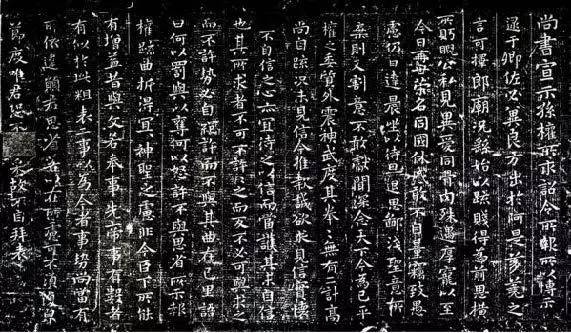 尚書宣示孫權所求詔令所報所以博示
逮于卿佐必冀良方出於阿是芻蕘之
言可擇郎廟況繇始以疏賤得為前恩橫
所盼睨公私見異愛同骨肉殊遇厚寵以至
今日再世榮名同國休慼敢不自量竊致愚
慮仍日達晨坐以待旦退思鄙淺聖意所
棄則又割意不敢獻聞深念天下今為已平
權之委質外震神武度其拳〻無有二計高
尚自疏況未見信今推款誠欲求見信實懷
不自信之心亦宜待之以信而當護其未自信
也其所求者不可不許許之而反不必可與求之
而不許勢必自絕許而不與其曲在己里語
曰何以罰與以奪何以怒許不與思省所示報
權疏曲折得宜宜神聖之慮非今臣下所能
有增益昔與文若奉事先帝事有數者
有似於此粗表二事以為今者事勢尚當有
所依違願君思省若以在所慮可不須復貌
節度唯君恐不采故不自拜表